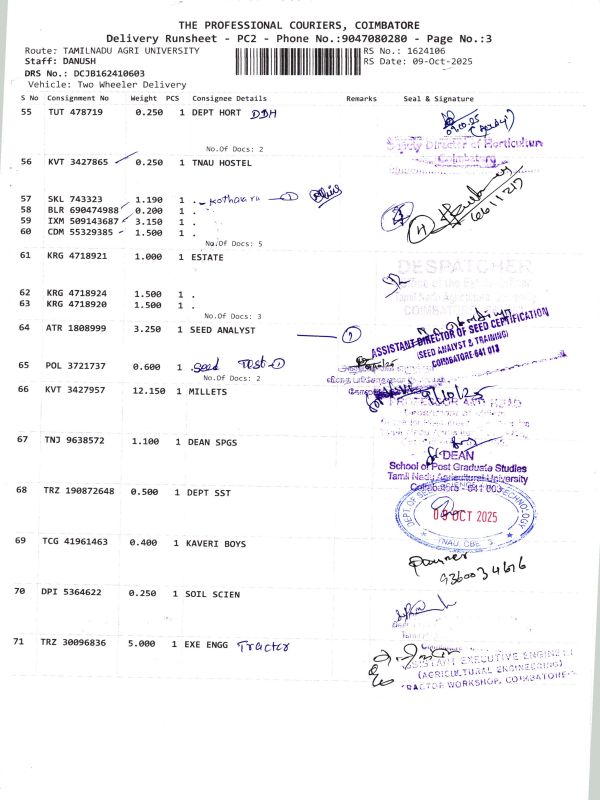 THE PROFESSIONAL COURIERS, COIMBATORE
Delivery Runsheet - PC2 - Phone No.:9047080280 - Page No.:3
Route: TAMILNADU AGRI UNIVERSITY RS No.: 1624106
Staff: DANUSH RS Date: 09-Oct-2025
DRS No.: DCJB162410603
Vehicle: Two Wheeler Delivery
S No Consignment No Weight PCS Consignee Details Remarks Seal & Signature
55 TUT 478719 0.250 1 DEPT HORT DDH
No.Of Docs: 2
Deputy Director of Horticulture
Coimbatore
56 KVT 3427865 0.250 1 TNAU HOSTEL
57 SKL 743323 1.190 1 .
58 BLR 690474988 0.200 1 .
59 IXM 509143687 3.150 1 .
60 CDM 55329385 1.500 1 .
No.Of Docs: 5
61 KRG 4718921 1.000 1 ESTATE
DESPATCHER
62 KRG 4718924 1.500 1 .
63 KRG 4718920 1.500 1 .
No.Of Docs: 3
64 ATR 1808999 3.250 1 SEED ANALYST
ASSISTANT DIRECTOR OF SEED CERTIFICATION
(SEED ANALYST & TRAINING)
COIMBATORE-641 013
65 POL 3721737 0.600 1 . Seed Test
No.Of Docs: 2
66 KVT 3427957 12.150 1 MILLETS
9/10/25
67 TNJ 9638572 1.100 1 DEAN SPGS
DEAN
School of Post Graduate Studies
Tamil Nadu Agricultural University
Coimbatore - 641 003
68 TRZ 190872648 0.500 1 DEPT SST
DEPT OF SEED SCIENCE TECHNOLOGY
09 OCT 2025
TNAU, CBE - 3
69 TCG 41961463 0.400 1 KAVERI BOYS
70 DPI 5364622 0.250 1 SOIL SCIEN
71 TRZ 30096836 5.000 1 EXE ENGG Tractor
ASSISTANT EXECUTIVE ENGINEER
(AGRICULTURAL ENGINEERING)
TRACTOR WORKSHOP, COIMBATORE-